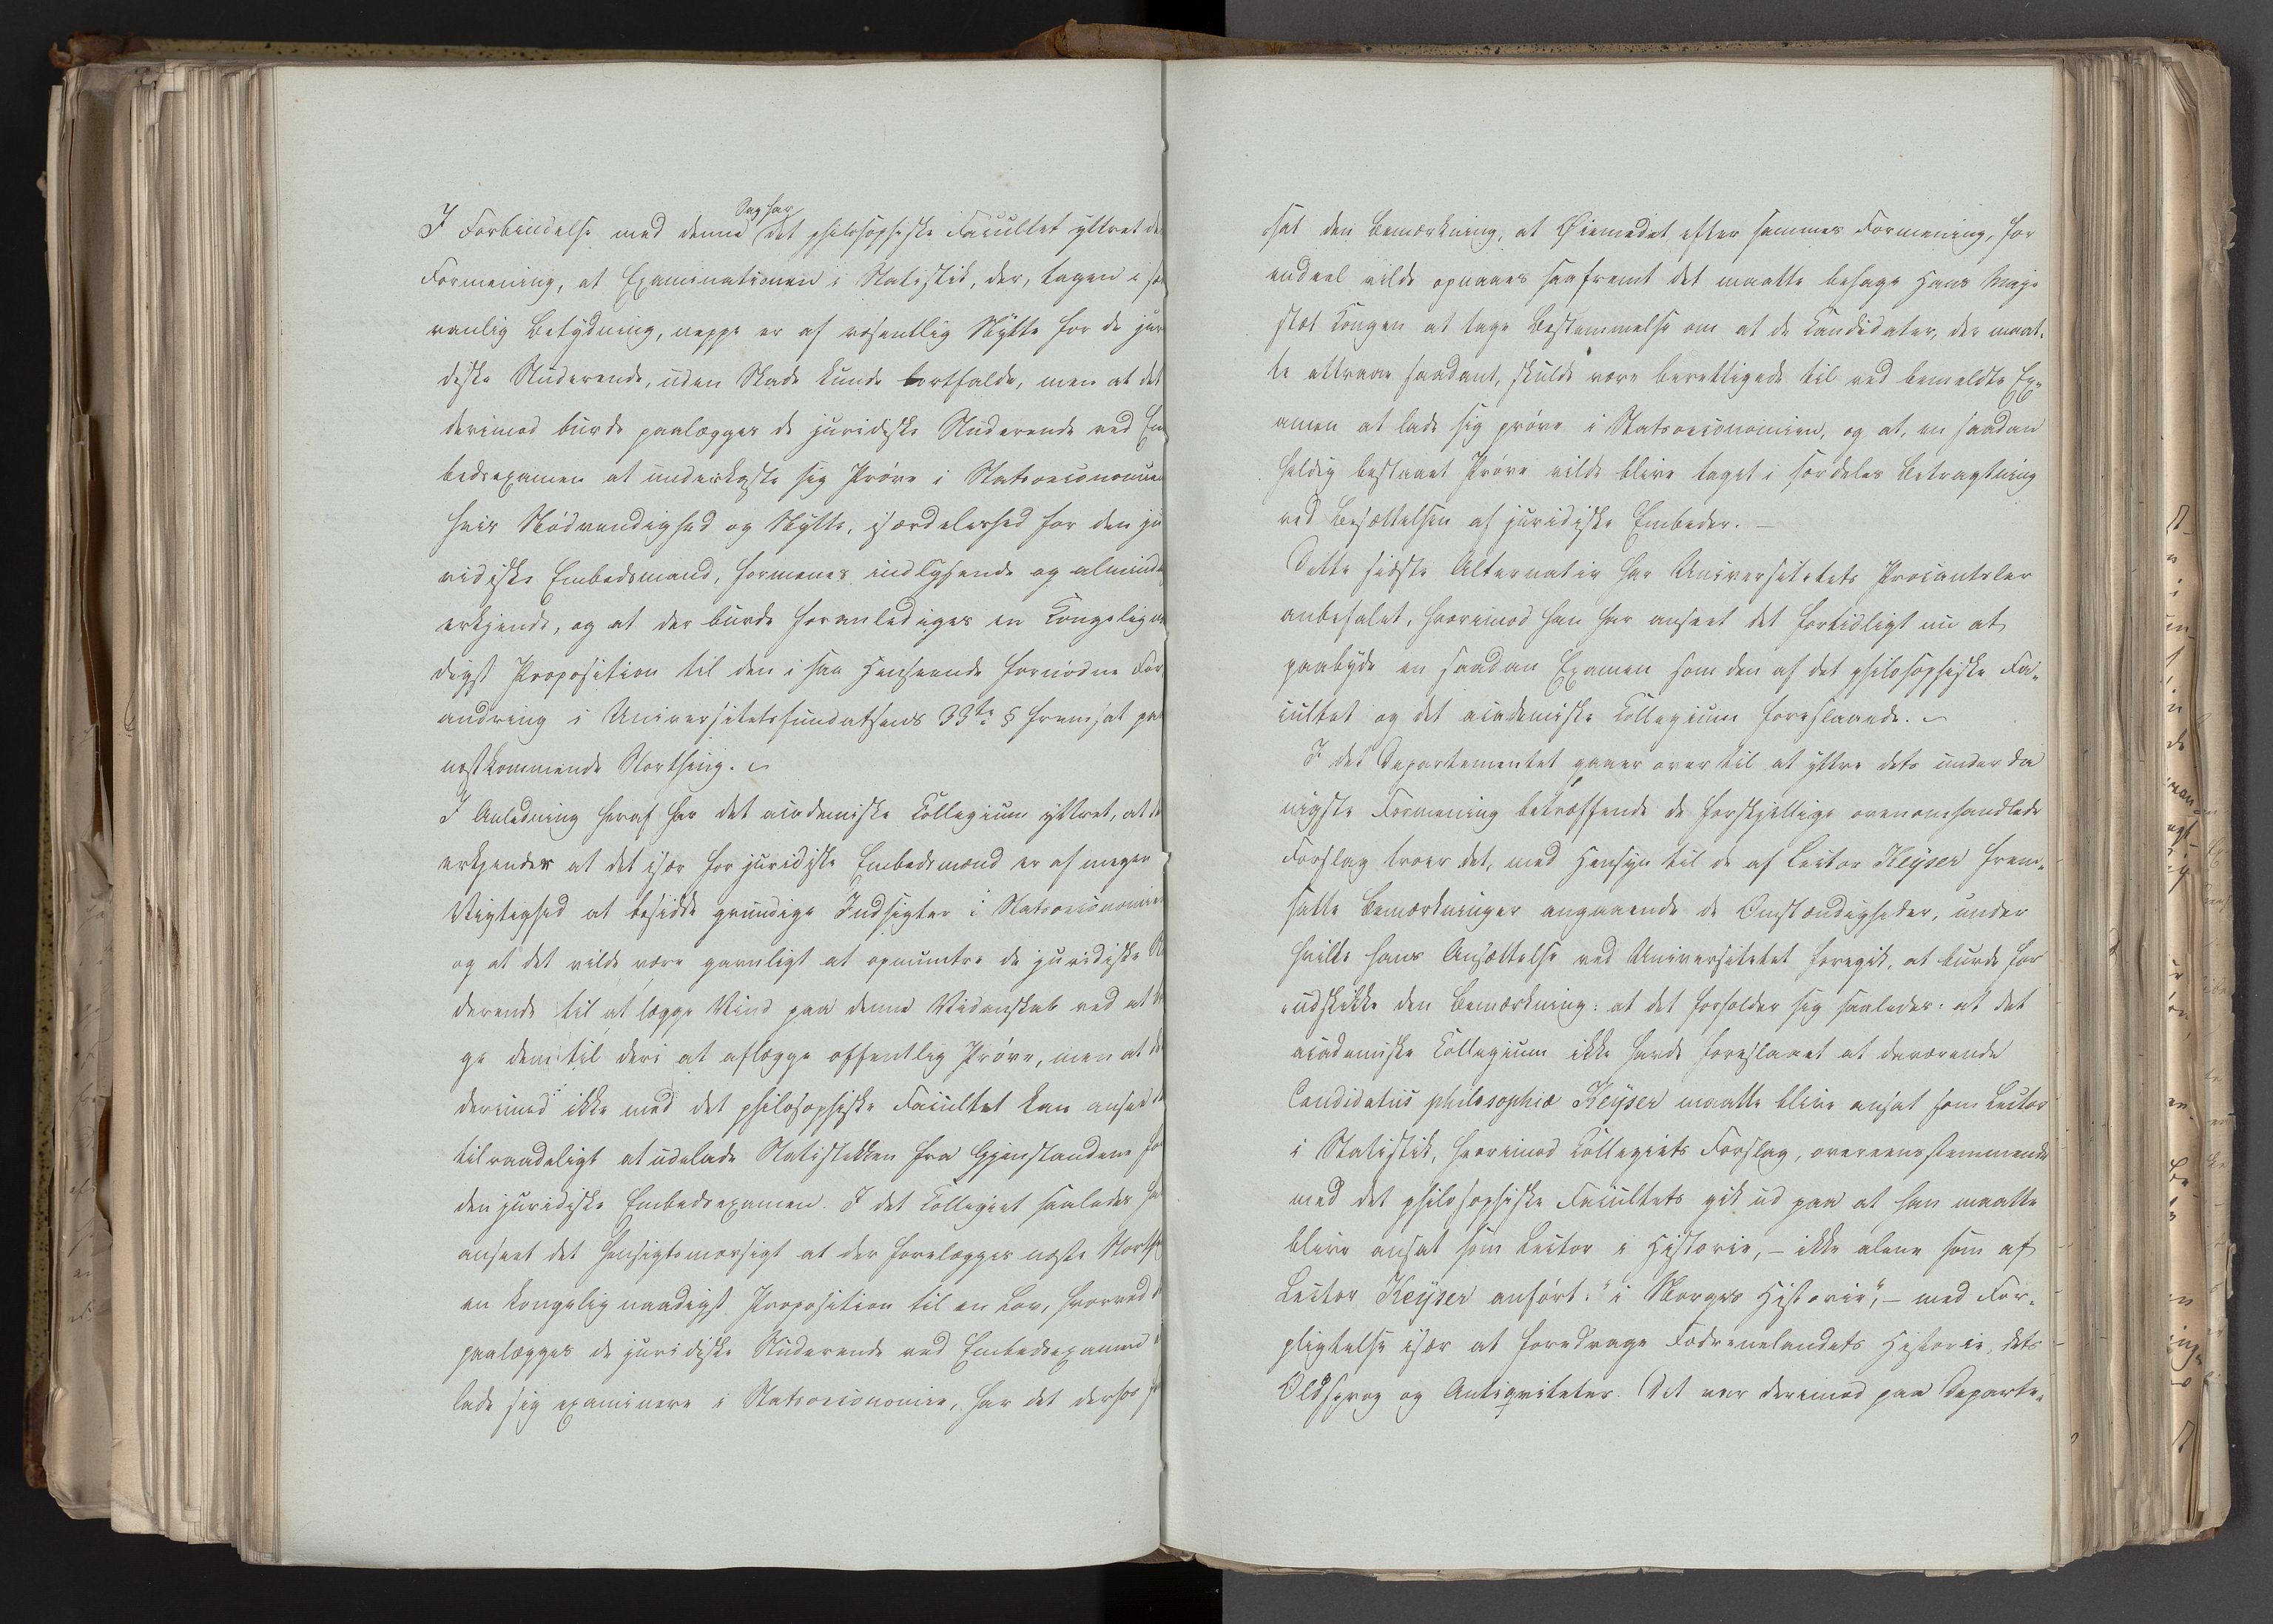 Sag har
I Forbindelse med denne det philosophiske Facultet yttret de
Formening, at Examinationen i Statistik, der, tagen i sæd
vanlig Betydning, neppe er af væsentlig Nytte for de juri
diske Studerende, uden Skade kunde bortfalde, men at det
derimod burde paalægges de juridiske Studerende ved Em
bedsexamen at underkaste sig Prøve i Statsoeconomien
hvis Nødvendighed og Nytte, isærdeleshed for den ju
ridiske Embedsmand, formenes indlysende og alminde
erkjendt, og at der burde foranlediges en Kongelig na
digst Proposition til den i saa Henseende fornødne For
andring i Universitetsfundatsens 33te § fremsat paa
næstkommende Storthing. ~
I Anledning heraf har det academiske Collegium yttret, at de
erkjender at det især for juridiske Embedsmænd er af megen
Vigtighed at besidde grundige Indsigter i Statsoeconomien
og at det vilde være gavnligt at opmuntre de juridiske Stu
derende til at lægge Vind paa denne Videnskab ved at
ge dem til deri at aflægge offentlig Prøve, men at det
derimod ikke med det philosophiske Facultet kan ansee de
tilraadeligt at udelade Statistikken fra Gjenstandene for
den juridiske Embedsexamen. I det Collegiet saaledes har
anseet det hensigtsmæssigt at der forelægges næste Storth
en kongelig naadigst Proposition til en Lov, hvorved d
paalægges de juridiske Studerende ved Embedsexamen
lade sig examinere i Statsoeconomie, har det derhos
sat den Bemærkning, at Øiemedet, efter sammes Formening, for
endeel vilde opnaaes saafremt det maatte behage Hans Maje
stæt Kongen at tage Bestemmelse om at de Candidater, der maat-
te attraae saadant, skulde være berettigede til ved bemeldte Ex-
amen at lade sig prøve i Statsoeconomien, og at, en saadan
heldig bestaaet Prøve vilde blive taget i særdeles Betragtning
ved Besættelsen af juridiske Embeder. –
Dette sidste Alternativ har Universitetets Procantsler
anbefalet, hvorimod han har anseet det fortidligt nu at
paabyde en saadan Examen som den af det philosophiske Fa-
cultet og det academiske Collegium foreslaaede. ~
I det Departementet gaaer over til at yttre dets underda
nigste Formening betræffende de forskjellige ovenomhandlede
Forslag troer det, med Hensyn til de af Lector Keyser frem-
satte Bemærkninger angaaende de Omstændigheder, under
hvilke hans Ansættelse ved Universitetet foregik, at burde for
udskikke den Bemærkning: at det forholder sig saaledes: at det
academiske Collegium ikke havde foreslaaet at daværende
Candidatus philosophiæ Keyser maatte blive ansat som Lector
i Statistik, hvorimod Collegiets Forslag, overeensstemmende
med det philosophiske Facultets gik ud paa at han maatte
blive ansat som Lector i Historie, – ikke alene som af
Lector Keyser anført: "i Norges Historie", – med For-
pligtelse især at foredrage Fædrenelandets Historie, dets
Oldsprog og Antiqviteter. Det var derimod paa Departe-